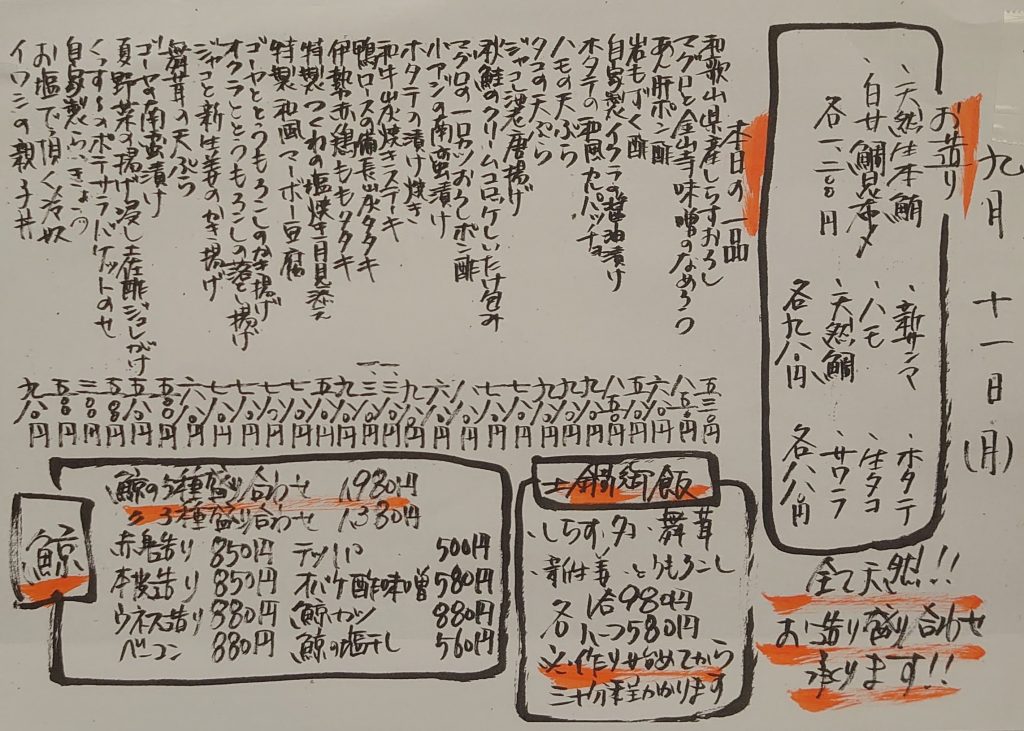 九月 十一日(月)
お造り
・天然生本鮪
・白甘鯛昆布〆
各一、二八〇円
・新サンマ
・ハモ
・天然鯛
各九八〇円
・ホタテ
・生タコ
・サワラ
各八八〇円
全て天然!!
お造り盛り合わせ
承ります!!
本日の一品
和歌山県産しらすおろし 五三〇円
マグロと金山寺味噌のなめろう 八五〇円
あん肝ポン酢 八八〇円
岩もずく酢 六五〇円
自家製イクラの醤油漬け 八五〇円
ホタテの和風カルパッチョ 九八〇円
ハモの天ぷら 九八〇円
タコの天ぷら 九八〇円
ジャコ入り唐揚げ 七八〇円
秋鮭のクリームコロッケしいたけ包み 七八〇円
マグロの一口カツおろしポン酢 八八〇円
小アジの南蛮漬け 六八〇円
ホタテの漬け焼き 九八〇円
和牛炭焼きステーキ
鴨ロースの備長炭タタキ
伊勢赤鶏ももタタキ 九八〇円
特製つくねの塩焼き月見添え 五八〇円
特製和風マーボー豆腐 七八〇円
ゴーヤととうもろこしのかき揚げ 七八〇円
オクラととうもろこしの落とし揚げ 七八〇円
ジャコと新生姜のかき揚げ 七八〇円
舞茸の天ぷら 六八〇円
ゴーヤの南蛮漬け 五〇〇円
夏野菜の揚げ冷し土佐酢ジュレがけ 五八〇円
くんすーのポテサラバケットのせ 五五〇円
自家製らっきょう 三〇〇円
お塩で頂く冷奴 五五〇円
イワシの親子丼 九八〇円
土鍋御飯
・しらす ・タコ ・舞茸
・新生姜 ・とうもろこし
各 1合980円
ハーフ580円
※作り始めてから
三十分程かかります
鯨
鯨の5種盛り合わせ 1,980円
〃 3種盛り合わせ 1,380円
赤身造り 850円
本皮造り 850円
ウネス造り 880円
ベーコン 880円
テッパイ 500円
オバケ酢味噌 580円
鯨カツ 880円
鯨の塩干し 560円